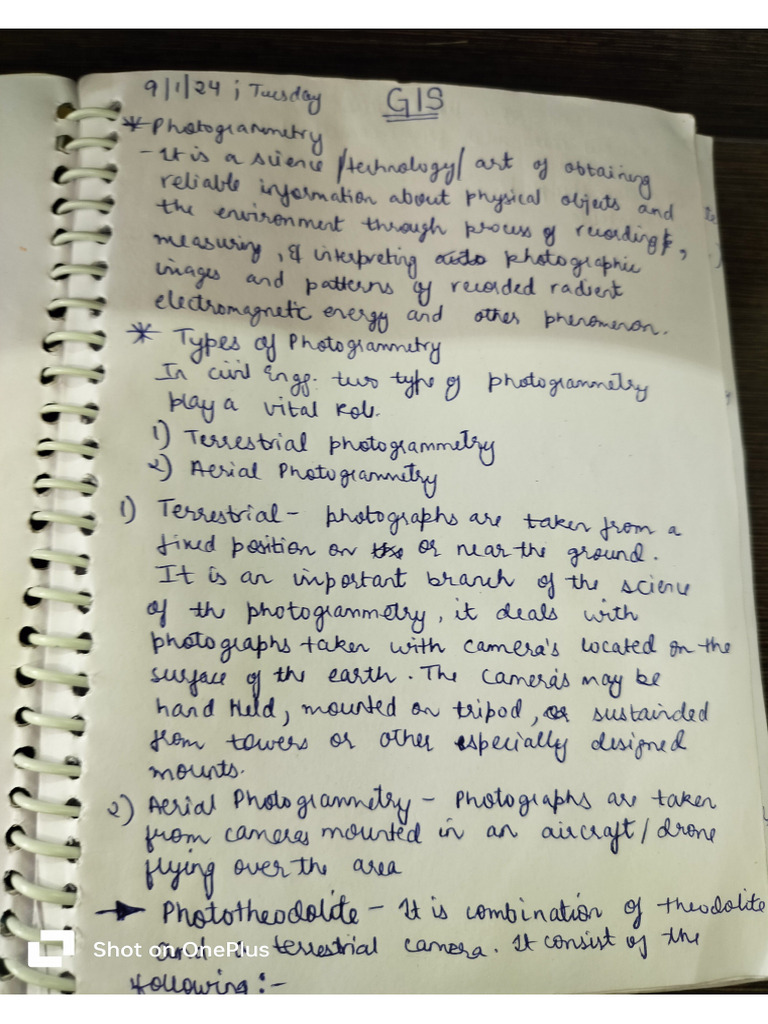 9/1/24 ; Tuesday GIS
* Photogrammetry
- It is a science /technology/ art of obtaining
reliable information about physical objects and
the environment through process of recording,
measuring, & interpreting photographic
images and patterns of recorded radient
electromagnetic energy and other phenomenon.
* Types of Photogrammetry
In civil Engg. two type of photogrammetry
play a vital Role.
1) Terrestrial photogrammetry
2) Aerial Photogrammetry
1) Terrestrial - photographs are taken from a
fixed position on or near the ground.
It is an important branch of the science
of the photogrammetry, it deals with
photographs taken with camera's located on the
surface of the earth. The camera's may be
hand Held, mounted on tripod, or sustainded
from towers or other especially designed
mounts.
2) Aerial Photogrammetry - Photographs are taken
from cameras mounted in an aircraft/drone
flying over the area
→ Phototheodolite - It is combination of theodolite
and terrestrial camera. It consist of the
following :-
Shot on OnePlus